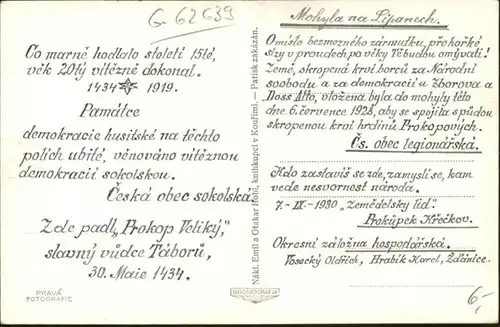 G-62639
Co marně hodlalo století 15té,
věk 20tý vítězně dokonal.
1434 1919.
Památce
demokracie husitské na těchto
polích ubité, věnováno vítěznou
demokracií sokolskou.
Česká obec sokolská
Zde padl „Prokop Veliký,"
slavný vůdce Táborů,
30. Maie 1434.
PRAVÁ
FOTOGRAFIE
Nákl. Emil a Otakar Hohl, knihkupci v Kouřimi. — Patisk zakázán.
BROMOGRAFIA
Mohyla na Lipanech.
Ó místo bezmezného zármutku, přehořké
slzy v proudech po věky Tě budou omývati!
Země, skropená krví borců za Národní
svobodu a za demokracii u Zborova a
Doss Alto, vložena byla do mohyly této
dne 6. července 1928, aby se spojila s půdou
skropenou krví hrdinů Prokopových.
Čs. obec legionářská.
Kdo zastavíš se zde, zamysli se, kam
vede nesvornost národa.
7.-IX.-1930 „Zemědělský lid"
Prokůpek Křečkov.
Okresní záložna hospodářská.
Vosecký Oldřich, Hrabík Karel, Ždánice.
6,-